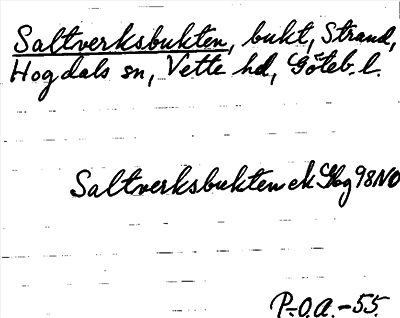 Saltverksbukten, bukt, Strand,
Hogdals sn, Vette hd, Göteb. l.
Saltverksbukten ek 98NO
P.-O.A.-55.